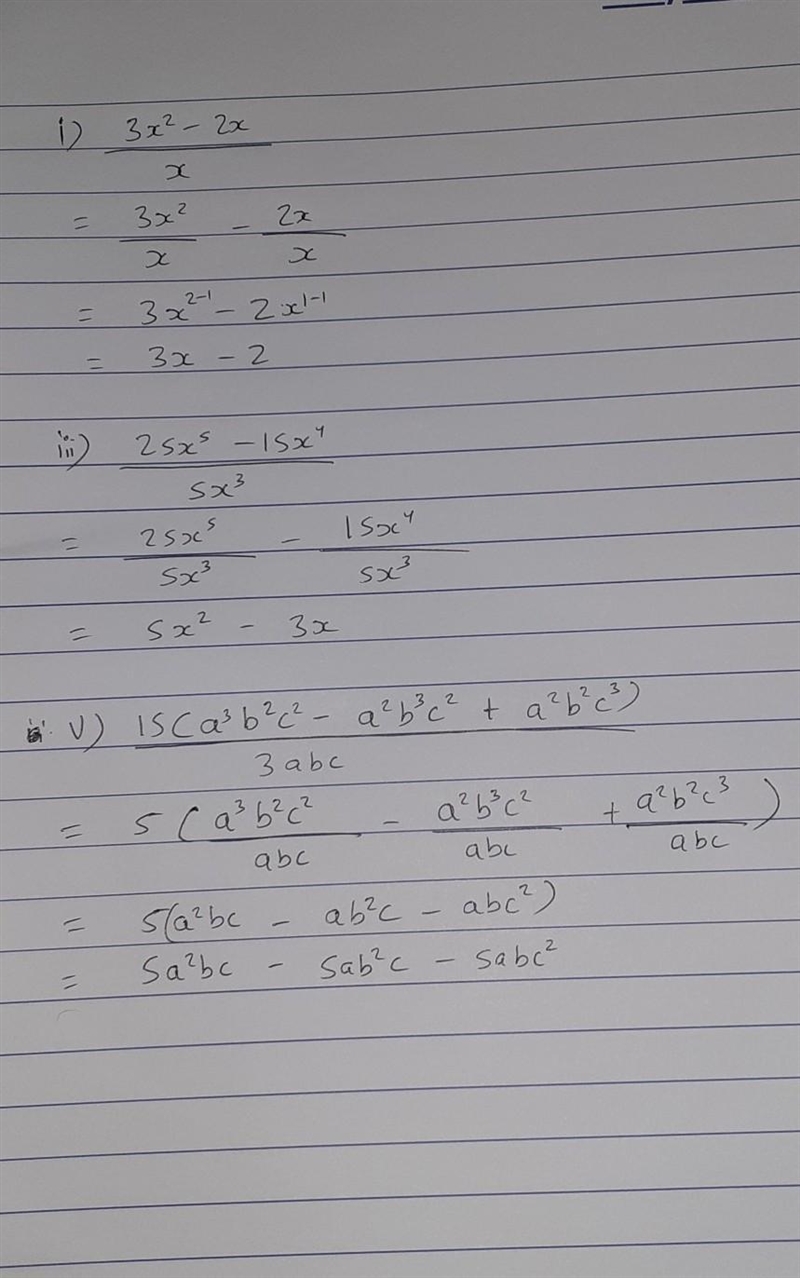 i) 3x² - 2x
x
= 3x² - 2x
x x
= 3x²⁻¹ - 2x¹⁻¹
= 3x - 2
iii) 25x⁵ - 15x⁴
5x³
= 25x⁵ - 15x⁴
5x³ 5x³
= 5x² - 3x
v) 15(a³b²c² - a²b³c² + a²b²c³)
3abc
= 5(a³b²c² - a²b³c² + a²b²c³)
abc abc abc
= 5(a²bc - ab²c - abc²)
= 5a²bc - 5ab²c - 5abc²